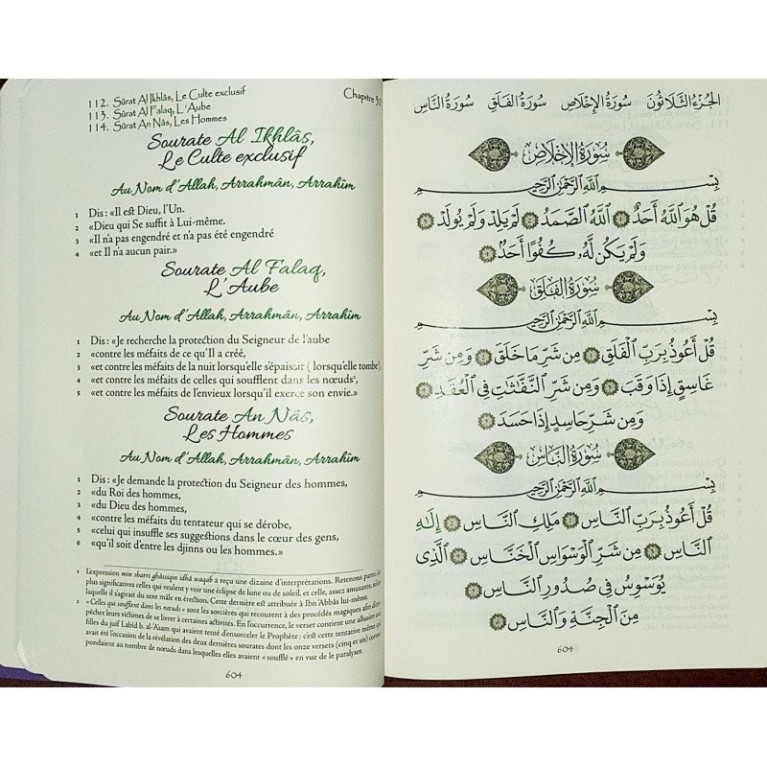 112. Sûrat Al Ikhlâs, Le Culte exclusif
113. Sûrat Al Falaq, L'Aube
114. Sûrat An Nâs, Les Hommes
Chapitre 30
Sourate Al Ikhlâs,
Le Culte exclusif
Au Nom d'Allah, Arrahmân, Arrahîm
1 Dis : «Il est Dieu, l'Un.
2 «Dieu qui Se suffit à Lui-même.
3 «Il n'a pas engendré et n'a pas été engendré
4 «et Il n'a aucun pair.»
Sourate Al Falaq,
L'Aube
Au Nom d'Allah, Arrahmân, Arrahîm
1 Dis : «Je recherche la protection du Seigneur de l'aube
2 «contre les méfaits de ce qu'Il a créé,
3 «et contre les méfaits de la nuit lorsqu'elle s'épaissit ( lorsqu'elle tombe¹).
4 «et contre les méfaits de celles qui soufflent dans les nœuds²,
5 «et contre les méfaits de l'envieux lorsqu'il exerce son envie.»
Sourate An Nâs,
Les Hommes
Au Nom d'Allah, Arrahmân, Arrahîm
1 Dis : «Je demande la protection du Seigneur des hommes,
2 «du Roi des hommes,
3 «du Dieu des hommes,
4 «contre les méfaits du tentateur qui se dérobe,
5 «celui qui insuffle ses suggestions dans le cœur des gens,
6 «qu'il soit d'entre les djinns ou les hommes.»
1 L'expression min sharri ghâssiqin idhâ waqab a reçu une dizaine d'interprétations. Retenons parmi les
plus significatives celles qui veulent y voir une éclipse de lune ou de soleil, et celle, assez amusante, selon
laquelle il s'agirait du sexe mâle en érection. Cette dernière est attribuée à Ibn 'Abbâs lui-même.
2 « Celles qui soufflent dans les nœuds » sont les sorcières qui recourent à des procédés magiques afin d'em-
pêcher leurs victimes de se livrer à certaines activités. En l'occurrence, le verset contient une allusion aux
filles du juif Labîd b. al-'Asam qui avaient tenté d'ensorceler le Prophète : c'est cette tentative même qui
avait été l'occasion de la révélation des deux dernières sourates dont les onze versets (cinq et six) corres-
pondaient au nombre de nœuds dans lesquelles elles avaient « soufflé » en vue de le paralyser.
604
الجُزْءُ الثَّلَاثُونَ سُورَةُ الإِخْلَاصِ سُورَةُ الفَلَقِ سُورَةُ النَّاسِ
سُورَةُ الإِخْلَاصِ
بِسْمِ ٱللَّهِ ٱلرَّحْمَٰنِ ٱلرَّحِيمِ
قُلْ هُوَ ٱللَّهُ أَحَدٌ ١ ٱللَّهُ ٱلصَّمَدُ ٢ لَمْ يَلِدْ وَلَمْ يُولَدْ ٣
وَلَمْ يَكُن لَّهُۥ كُفُوًا أَحَدٌۢ ٤
سُورَةُ الفَلَقِ
بِسْمِ ٱللَّهِ ٱلرَّحْمَٰنِ ٱلرَّحِيمِ
قُلْ أَعُوذُ بِرَبِّ ٱلْفَلَقِ ١ مِن شَرِّ مَا خَلَقَ ٢ وَمِن شَرِّ
غَاسِقٍ إِذَا وَقَبَ ٣ وَمِن شَرِّ ٱلنَّفَّٰثَٰتِ فِى ٱلْعُقَدِ ٤
وَمِن شَرِّ حَاسِدٍ إِذَا حَسَدَ ٥
سُورَةُ النَّاسِ
بِسْمِ ٱللَّهِ ٱلرَّحْمَٰنِ ٱلرَّحِيمِ
قُلْ أَعُوذُ بِرَبِّ ٱلنَّاسِ ١ مَلِكِ ٱلنَّاسِ ٢ إِلَٰهِ
ٱلنَّاسِ ٣ مِن شَرِّ ٱلْوَسْوَاسِ ٱلْخَنَّاسِ ٤ ٱلَّذِى
يُوَسْوِسُ فِى صُدُورِ ٱلنَّاسِ ٥
مِنَ ٱلْجِنَّةِ وَٱلنَّاسِ ٦
604